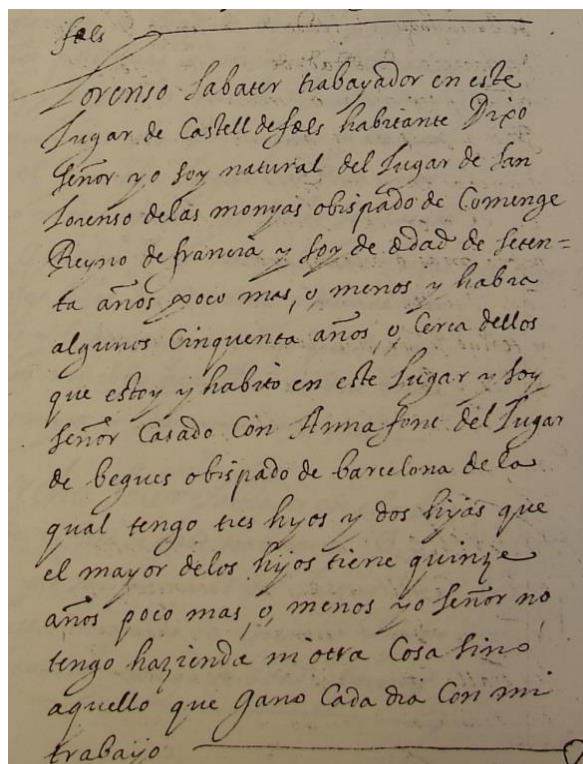 fels
Lorenso Sabater trabayador en este
Lugar de Castelldefels habitante Dixo
Señor yo soy natural del Lugar de San
Lorenso delas monyas obispado de Comenge
Reyno de francia y soy de edad de seten=
ta años poco mas, o, menos y habra
algunos Cinquenta años, o, Cerca dellos
que estoy y habito en este Lugar y soy
señor Casado Con Anna font del Lugar
de begues obispado de barcelona de la
qual tengo tres hyos y dos hijas que
el mayor delos hijos tiene quinze
años poco mas, o, menos yo señor no
tengo hazienda ni otra Cosa sino
aquello que gano Cada dia Con mi
trabayo